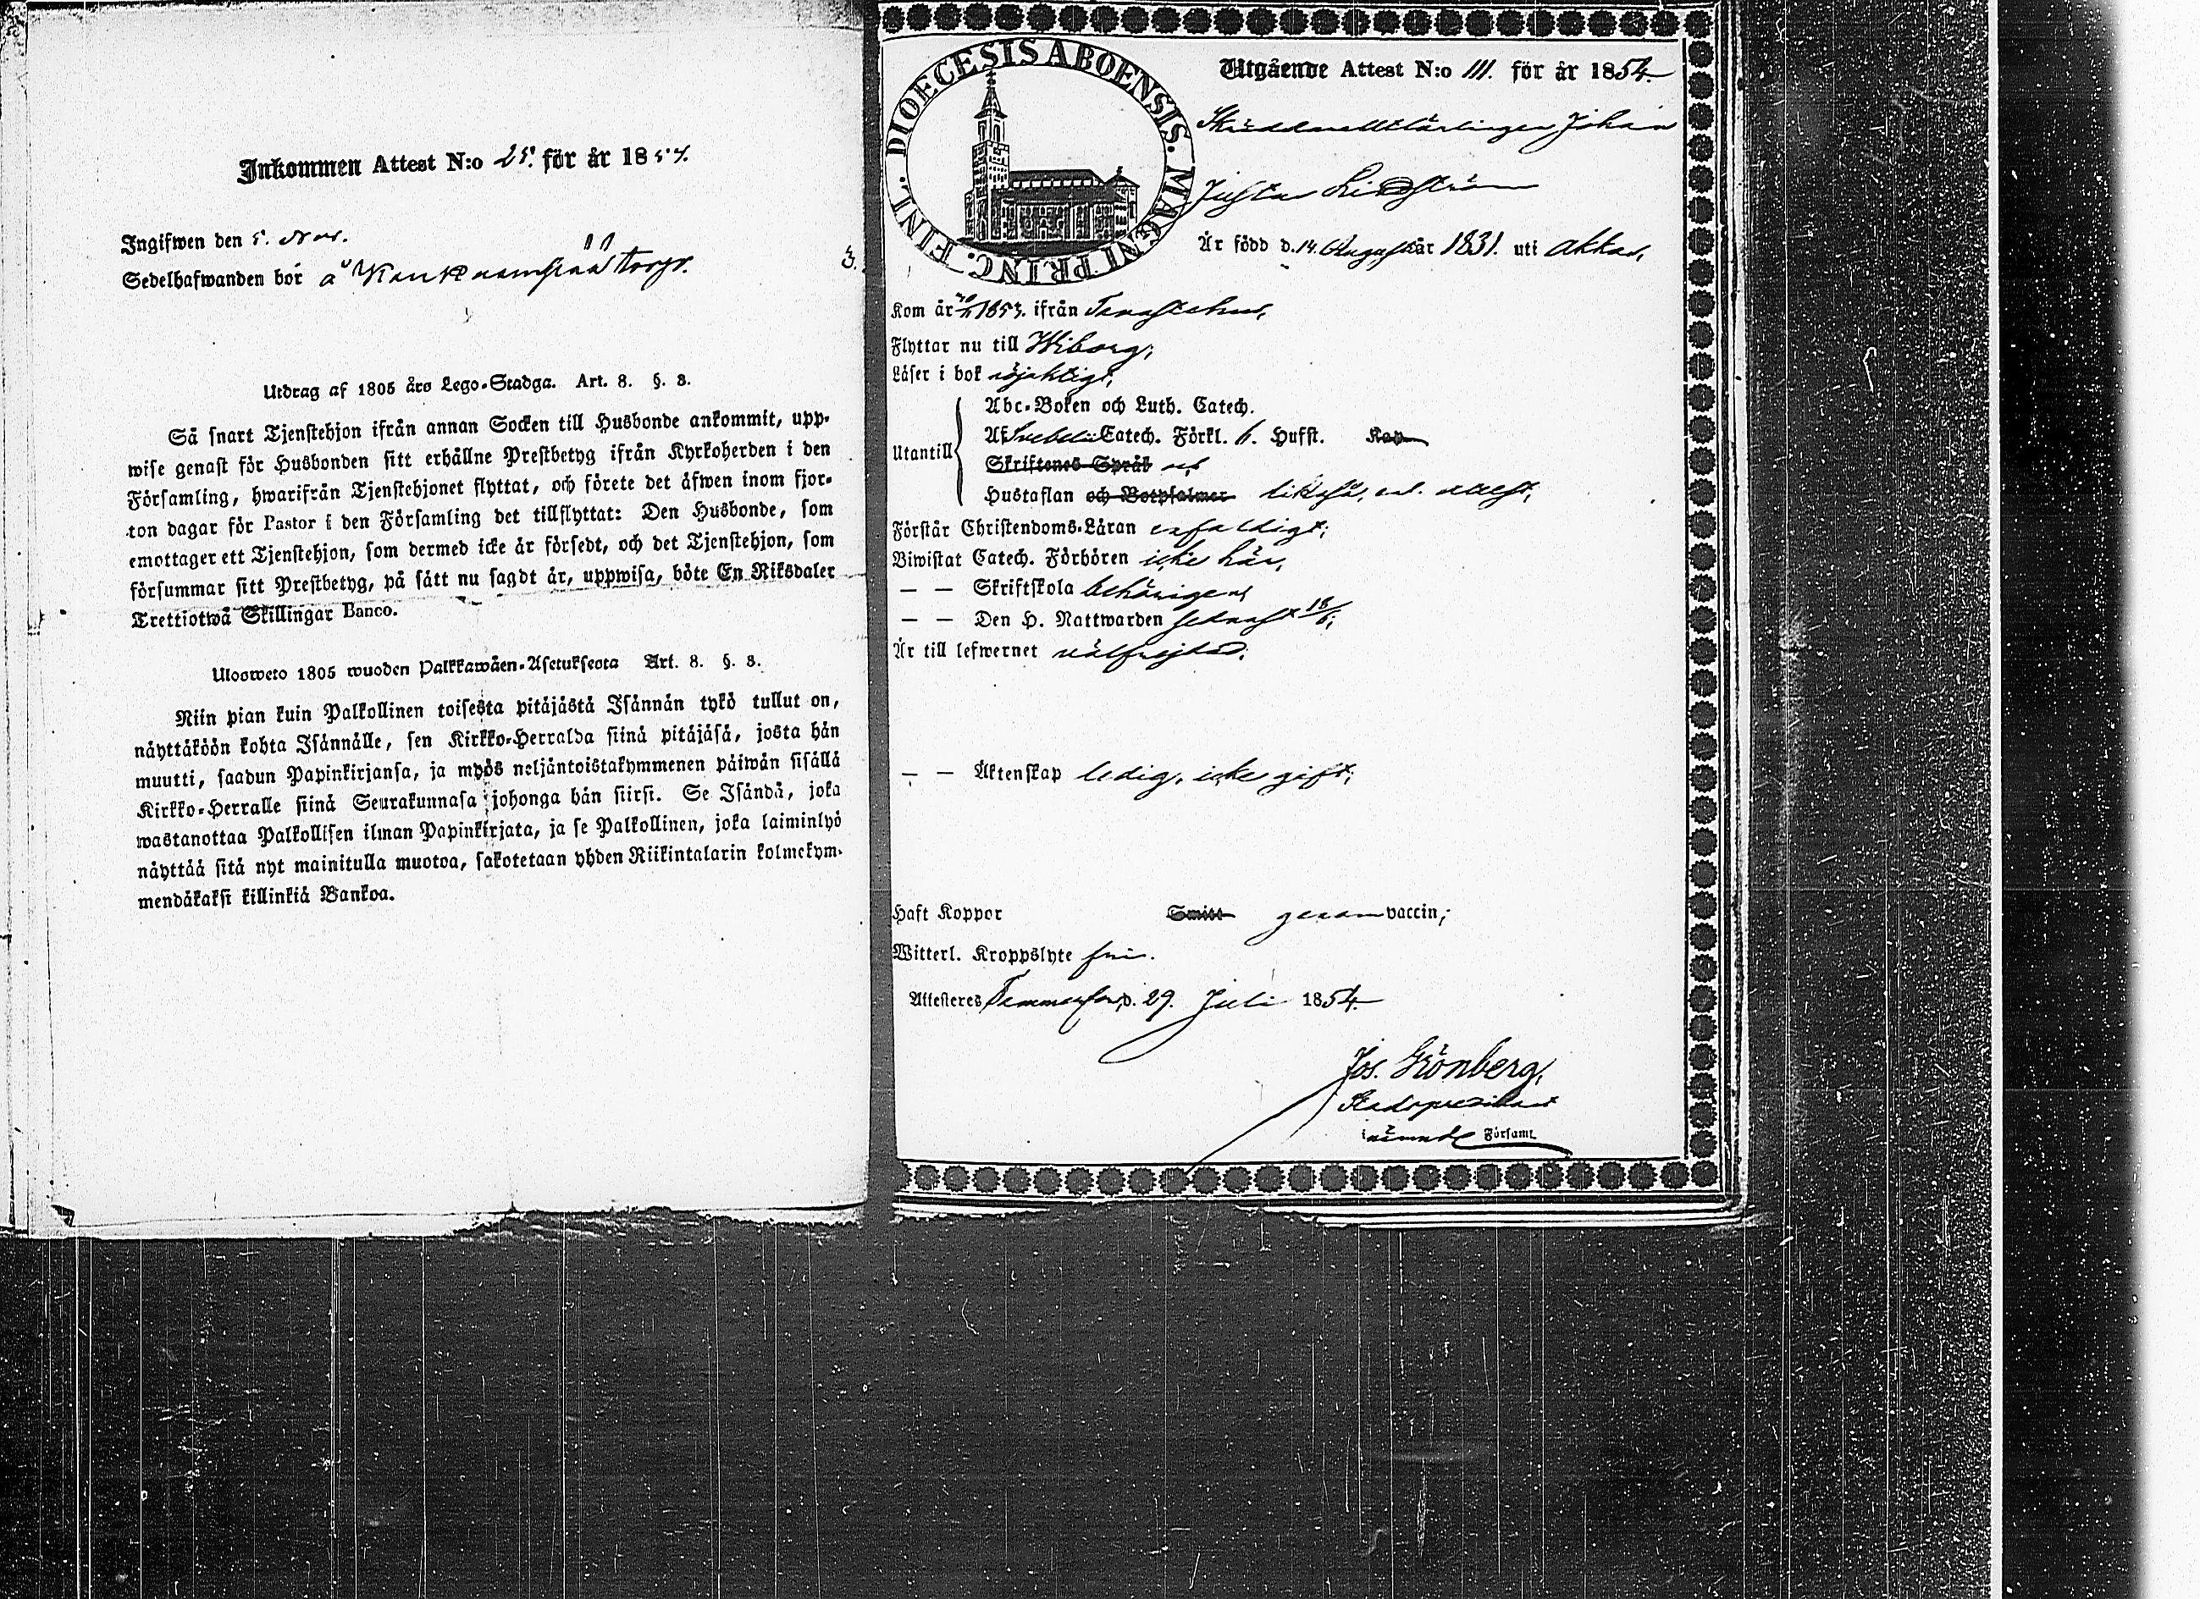 Inkommen Attest N:o 25. för år 1854.
Ingifwen den 5. Nov.
Sedelhafwanden bor å
Utdrag af 1805 års Lego-Stadga. Art. 8. §. 3.
Så snart Tjenstehjon ifrån annan Socken till Husbonde ankommit, upp-
wise genast för Husbonden sitt erhållne Prestbetyg ifrån Kyrkoherden i den
Församling, hwarifrån Tjenstehjonet flyttat, och förete det äfwen inom fjor-
ton dagar för Pastor i den Församling det tillflyttat: Den Husbonde, som
emottager ett Tjenstehjon, som dermed icke är försedt, och det Tjenstehjon, som
försummar sitt Prestbetyg, på sätt nu sagdt är, uppwisa, böte En Riksdaler
Trettiotwå Skillingar Banco.
Ulosweto 1805 wuoden Palkkawäen-Asetuksesta Art. 8. §. 3.
Niin pian kuin Palkollinen toisesta pitäjästä Isännän tykö tullut on,
näyttäköön kohta Isännälle, sen Kirkko-Herralda siinä pitäjäsä, josta hän
muutti, saadun Papinkirjansa, ja myös neljäntoistakymmenen päiwän sisällä
Kirkko-Herralle siinä Seurakunnasa johonga hän siirsi. Se Isändä, joka
wastanottaa Palkollisen ilman Papinkirjata, ja se Palkollinen, joka laiminlyö
näyttää sitä nyt mainitulla muotoa, sakotetaan yhden Riikintalarin kolmekym-
mendäkaksi killinkiä Bankoa.
3.
DIOECESIS ABOENSIS. MAGNI PRINC. FINL.
Utgående Attest N:o 111. för år 1854.
Skräddarelärlingen Johan
Gustaf Lindström
Är född d. 14. Augusti år 1831. uti Akkas,
Kom år 1853. ifrån Tavastehus,
Flyttar nu till Wiborg;
Läser i bok nöjaktigt,
Abc-Boken och Luth. Catech.
Utantill
Af Svebelii Catech. Förkl. 6. Hufst. Kap
Skriftenes Språk och
Hustaflan och Botpsalmer likaså,
Förstår Christendoms-Läran enfaldigt;
Biwistat Catech. Förhören icke här,
— — Skriftskola behörigen,
— — Den H. Nattwarden sednast 18/6;
Är till lefwernet välfrejdad;
— — Äktenskap ledig, icke gift;
Haft Koppor Smitt genom vaccin;
Witterl. Kroppslyte fri.
Attesteres Tammerfors, d. 29. Juli 1854.
Jos. Grönberg,
Stadspredikant
i nämnde Församl.